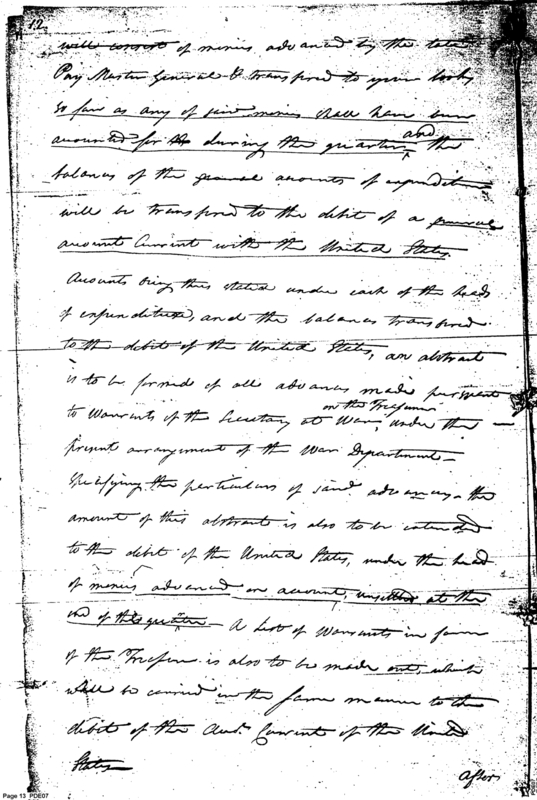 12
will consist of monies advanced by the late
Pay Master General & transfered to your books
so far as any of said monies shall have been
accounted for during the quarter, and the
balances of the several accounts of expenditure
will be transfered to the debit of a general
account Current with the United States.
Accounts being thus stated under each of the heads
of expenditure, and the balances transfered
to the debit of the United States, an abstract
is to be formed of all advances made pursuant
on the Treasurer
to Warrants of the Secretary at War, under the
present arrangement of the War Department
specifying the particulars of said advances - the
amount of this abstract is also to be extended
to the debit of the United States, under the head
of monies advanced on account, unsettled at the
end of this quarter - A list of Warrants in favor
of the Treasurer is also to be made out, which
will be carried in the same manner to the
debit of the Acct. Current of the United
States
After
Page 13 PDE07